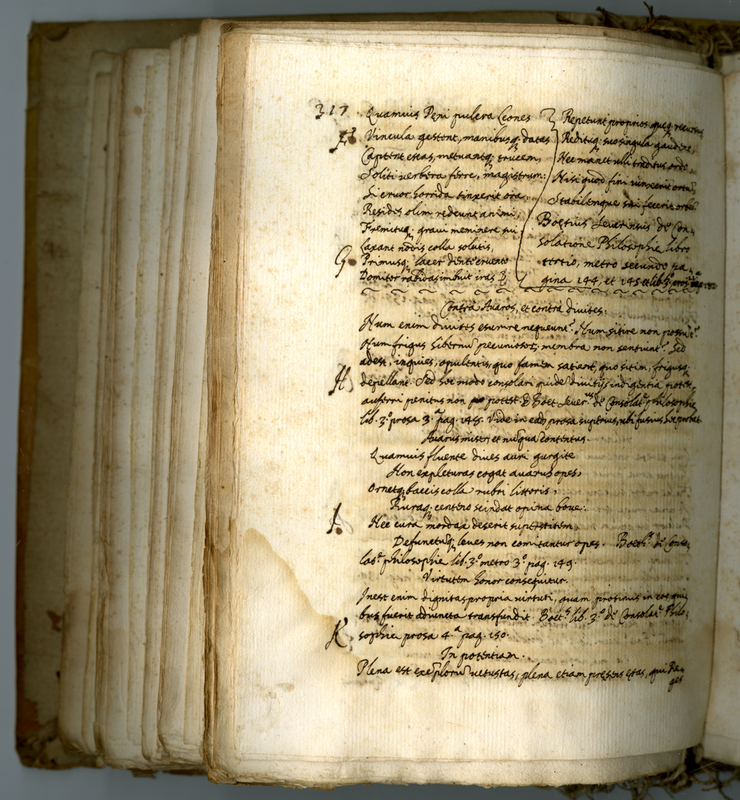 317 Quamuis Peni pulcra Leones
F Vincula gestent, manibusq; datas
Captent escas, metuantq; trucem,
Soliti uerbera ferre, magistrum:
Si cruor horrida tinxerit ora,
Resides olim redeunt animi,
Fremituq; graui meminere sui
Laxant nodis colla solutis,
G Primusq; lacer dente cruento
Domitor rabidas imbuit iras.
Repetunt proprios quęq; recursus
Redituq; suo singula gaudent,
Nec manet ulli traditus ordo
Nisi quod fini iunxerit ortum,
Stabilemque sui fecerit orbem
Boetius Seuerinus de Con-
solatione Philosophię libro
tertio, metro secundo pa-
gina 144, et 145
Contra Auaros, et contra diuites.
Num enim diuites esurire nequeunt? Num sitire non possunt?
Num frigus hibernum pecuniosor. membra non sentiunt? Sed
adest, inquies, opulentis, quo famem satient, quo sitim, frigusq;
H depellant. Sed hoc modo consolari quidem diuitijs indigentia potest,
auferri penitus non potest. Boet. Seuer. de Consolat. philosophię
lib. 3.º prosa 3.ª pag. 148. Vide in eadem prosa superius, ubi fusius hoc probat
Auarus miser, et nunquam contentus.
Quamuis fluente diues auri gurgite
Non expleturas cogat auarus opes,
Ornetq; baccis colla rubri littoris,
Ruraq; centeno scindat opima boue:
I Nec cura mordax deserit superstitem,
Defunctumq; leues non comitantur opes. Boeth. de Conso-
lat. philosophię lib. 3.º metro 3.º pag. 149.
Virtutem honor consequitur.
Inest enim dignitas propria uirtuti, quam protinus in eos qui-
bus fuerit adiuncta transfundit. Boet. lib. 3.º de Consolat. Philo-
K sophię prosa 4.ª pag. 150.
In potentiam.
Plena est exemplorum uetustas, plena etiam pręsens ętas, qui Re-
ges